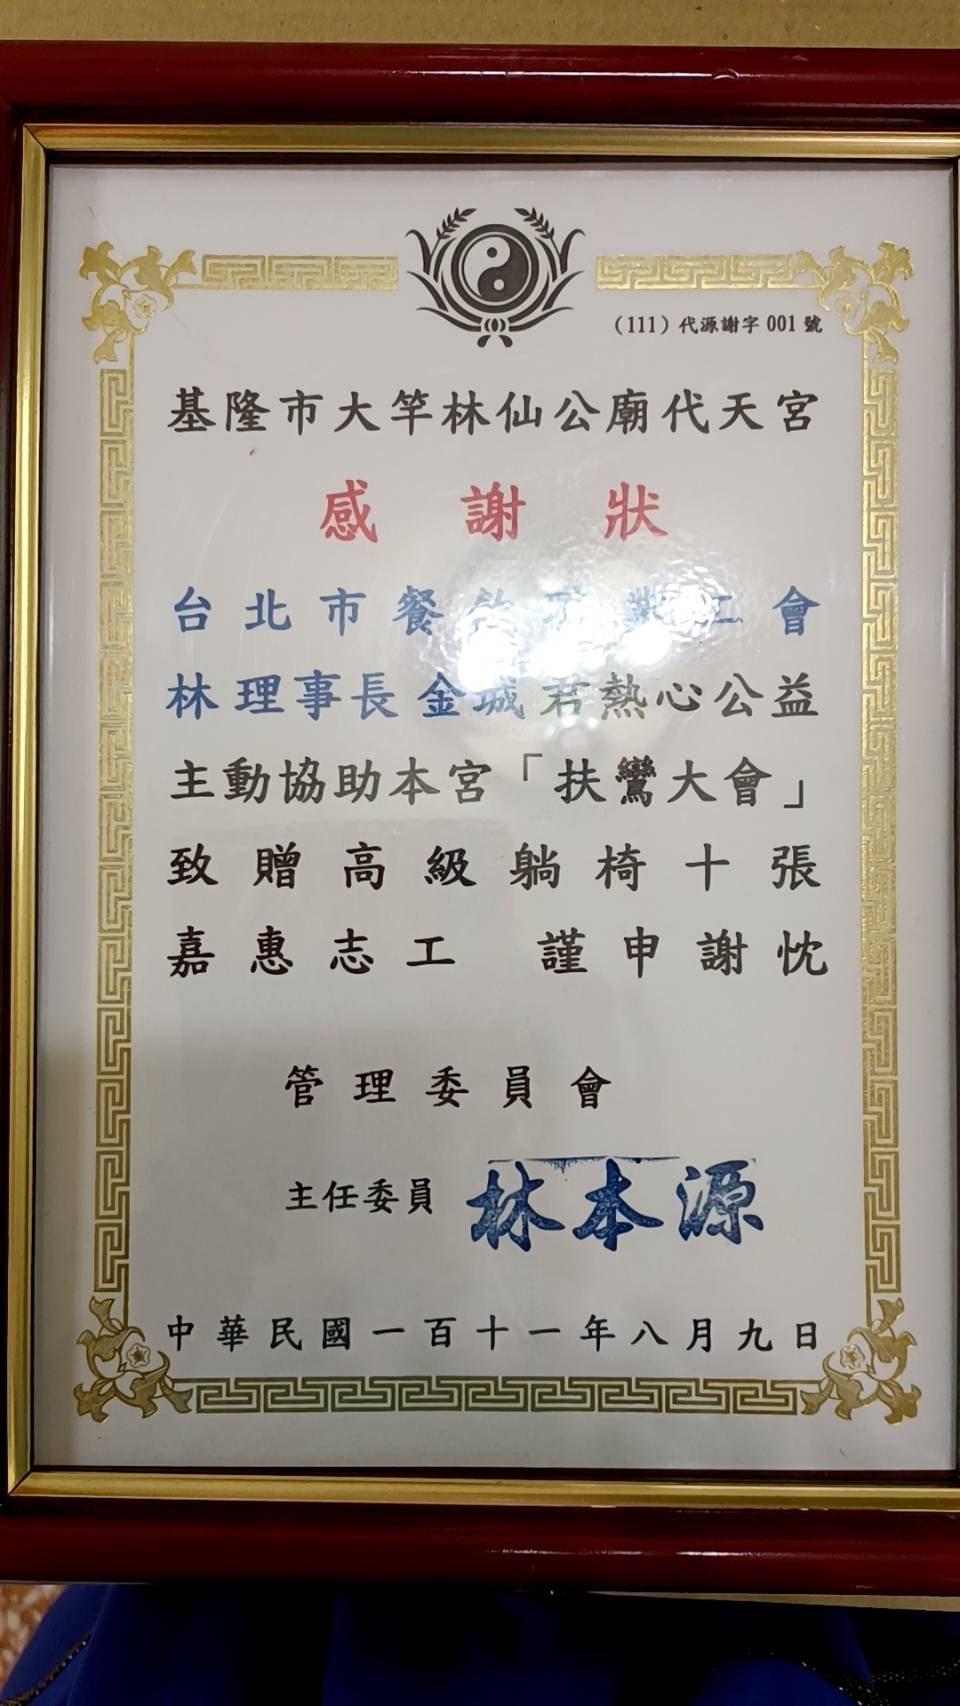 (111) 代源謝字 001 號
基隆市大竿林仙公廟代天宮
感謝狀
台北市餐飲 業工會
林理事長金城君熱心公益
主動協助本宮「扶鸞大會」
致贈高級躺椅十張
嘉惠志工 謹申謝忱
管理委員會
主任委員 林本源
中華民國一百十一年八月九日